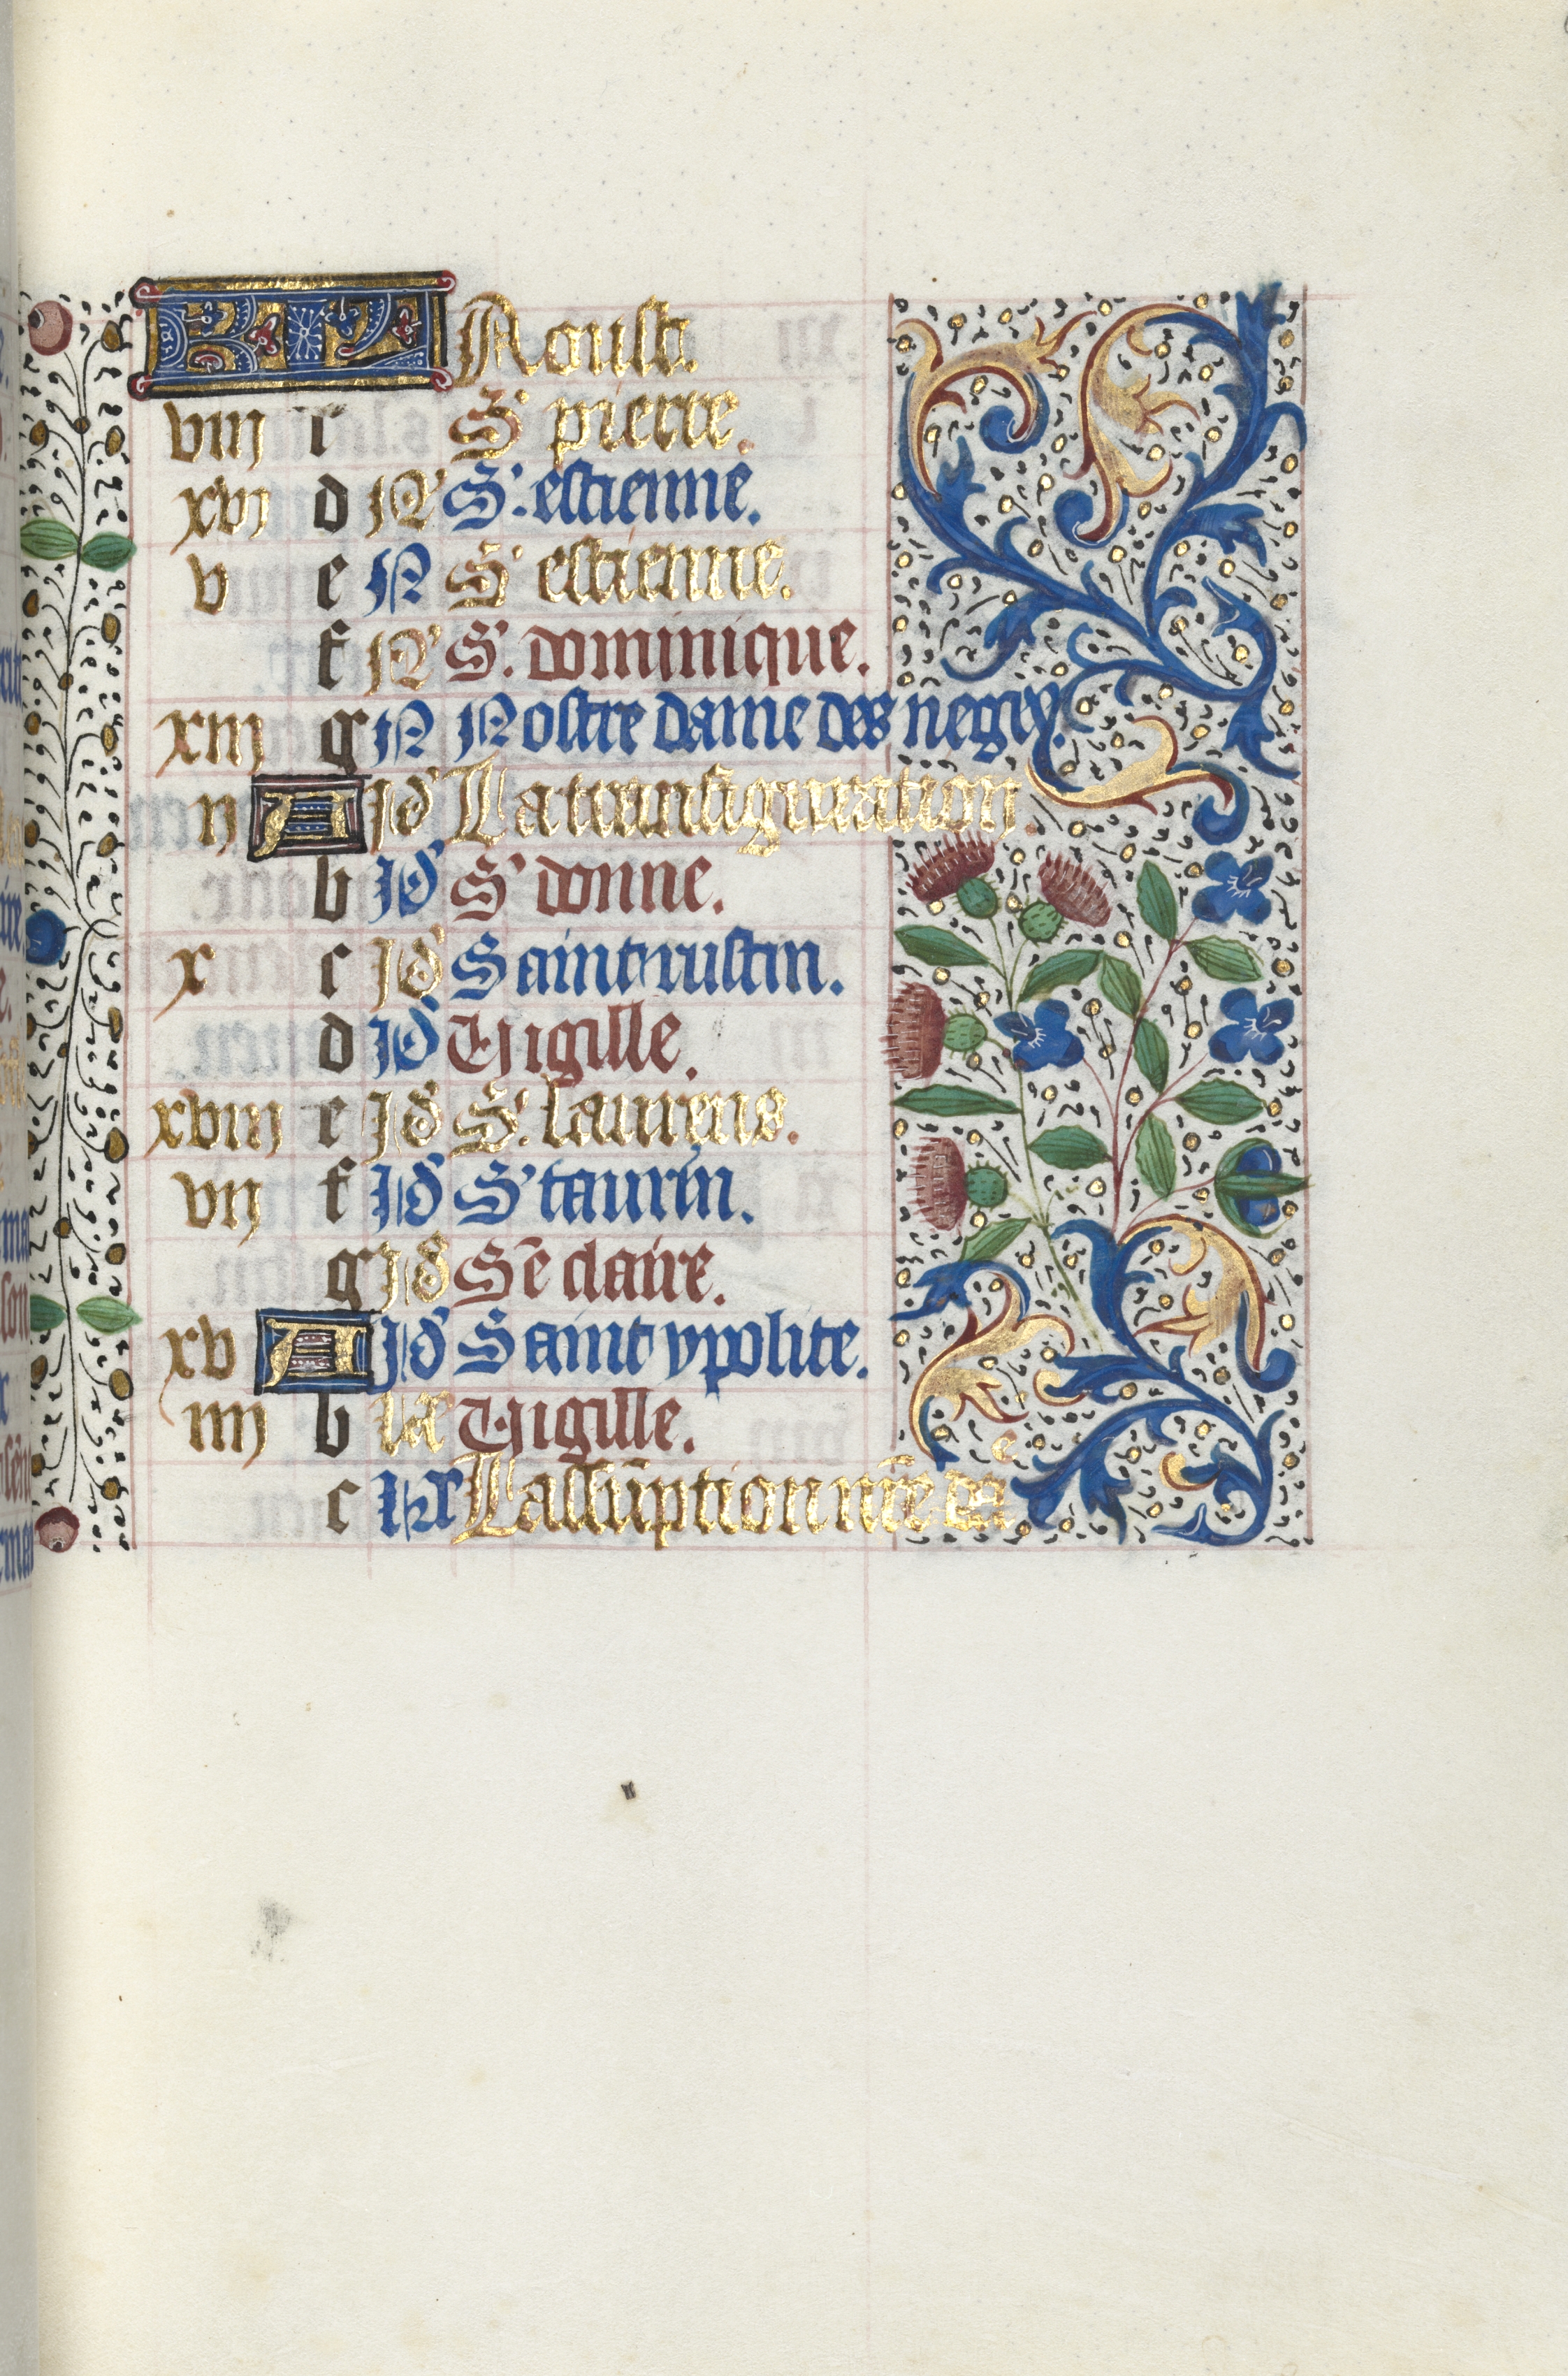 KL Aoust.
viii c S' pierre.
xvi d N' S'. estienne.
v e N S' estienne.
f N' S'. dominique.
xiii g N Nostre dame des negez.
ii A Id' La transfiguration
b Id' S' donne.
x c Id' Saint iustin.
d Id' Vigille.
xviii e Id' S'. laurens.
vii f Id' S' taurin.
g Id' Sē claire.
xv A Id' Saint ypolite.
iiii b kl' Vigille.
c kl' Lassūption nr̄e da